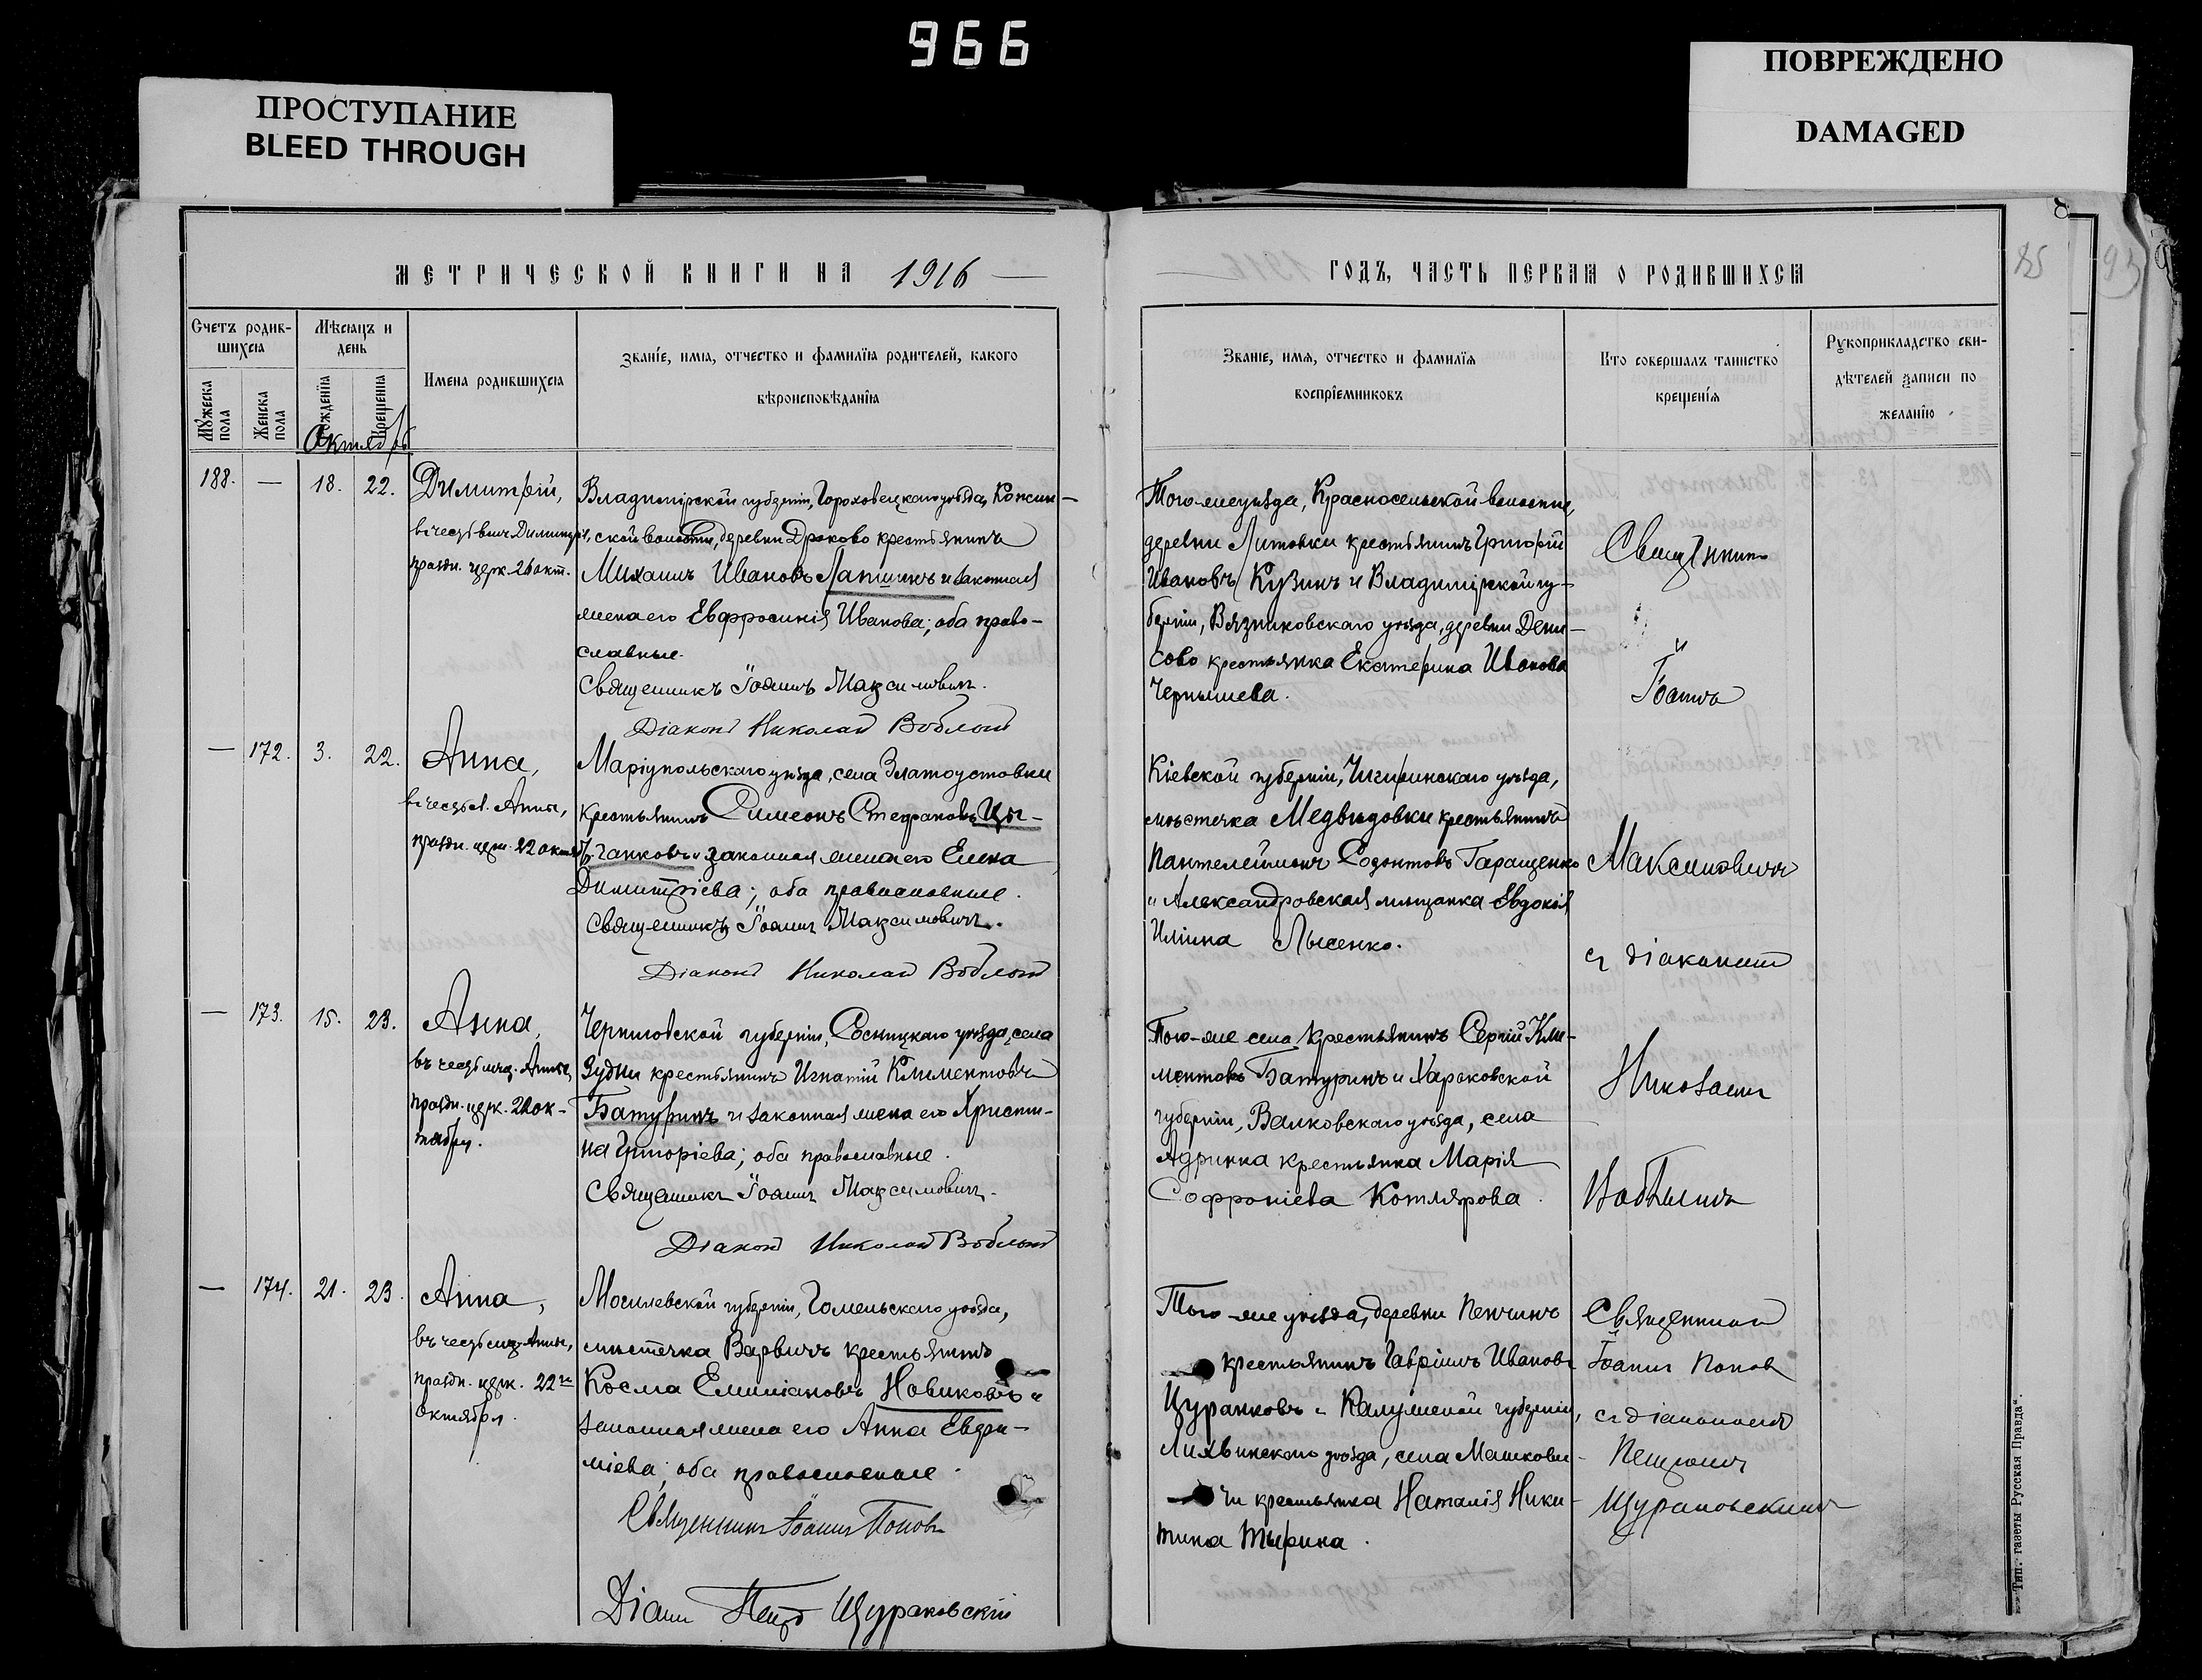 966
ПРОСТУПАНИЕ
BLEED THROUGH
ПОВРЕЖДЕНО
DAMAGED
МЕТРИЧЕСКОЙ КНИГИ НА 1916
Счетъ родив-
шихся
Мѣсяцъ и
день
Мужеска
пола
Женска
пола
Рожденія
Крещенія
Октябрь
Имена родившихся
Званіе, имя, отчество и фамилія родителей, какого
вѣроисповѣданія
188. — 18. 22. Димитрій,
празн. церк. 26 окт.
Владимірской губерніи, Гороховецкаго уѣзда, Кожин-
ской волости, деревни Драково крестьянинъ
Михаилъ Ивановъ Лапшинъ и законная
жена его Евфросинія Иванова; оба право-
славные.
Священникъ Іоаннъ Максимовичъ.
Діаконъ Николай Воблый
— 172. 3. 22. Анна,
въ честь св. Анны,
празн. церк. 22 октяб.
Маріупольскаго уѣзда, села Златоустовки
крестьянинъ Симеонъ Стефановъ Цы-
ганковъ и законная жена его Елена
Димитріева; оба православные.
Священникъ Іоаннъ Максимовичъ.
Діаконъ Николай Воблый
— 173. 15. 23. Анна,
въ честь муч. Анны,
празн. церк. 22 ок-
тября.
Черниговской губерніи, Сосницкаго уѣзда, села
крестьянинъ Игнатій Климентовъ
Батуринъ и законная жена его Христи-
на Григоріева; оба православные.
Священникъ Іоаннъ Максимовичъ.
Діаконъ Николай Воблый
— 174. 21. 23. Анна,
въ честь муч. Анны,
празн. церк. 22го
октября.
Могилевской губерніи, Гомельскаго уѣзда,
мѣстечка Варвичъ крестьянинъ
Косма Емиліановъ Новиковъ и
законная жена его Анна Евфи-
міева; оба православные.
Священникъ Іоаннъ Поповъ
Діаконъ Петръ Щураковскій
ГОДЪ, ЧАСТЬ ПЕРВАЯ О РОДИВШИХСЯ
85
93
Званіе, имя, отчество и фамилія
воспріемниковъ
Кто совершалъ таинство
крещенія
Рукоприкладство сви-
дѣтелей записи по
желанію
Того-же уѣзда, Красносельской волости,
деревни Литовки крестьянинъ Григорій
Ивановъ Кузинъ и Владимірской гу-
берніи, Вязниковскаго уѣзда, деревни Дени-
сово крестьянка Екатерина Иванова
Чернышева.
Священникъ
Іоаннъ
Кіевской губерніи, Чигиринскаго уѣзда,
мѣстечка Медвѣдовки крестьянинъ
Пантелеймонъ Созонтовъ Таращенко
и Александровская мѣщанка Евдокія
Иліина Лысенко.
Максимовичъ
съ діакономъ
Того-же села крестьянинъ Сергій Кли-
ментовъ Батуринъ и Харьковской
губерніи, Валковскаго уѣзда, села
Адринка крестьянка Марія
Софроніева Котлярова.
Николаемъ
Воблымъ
Того-же уѣзда, деревни Пенчинъ
крестьянинъ Гавріилъ Ивановъ
Цуранковъ и Калужской губерніи,
Лихвинскаго уѣзда, села Машкови-
чи крестьянка Наталія Ники-
тина Тырина.
Священникъ
Іоаннъ Поповъ
съ діакономъ
Петромъ
Щураковскимъ
Тип. газеты „Русская Правда“.